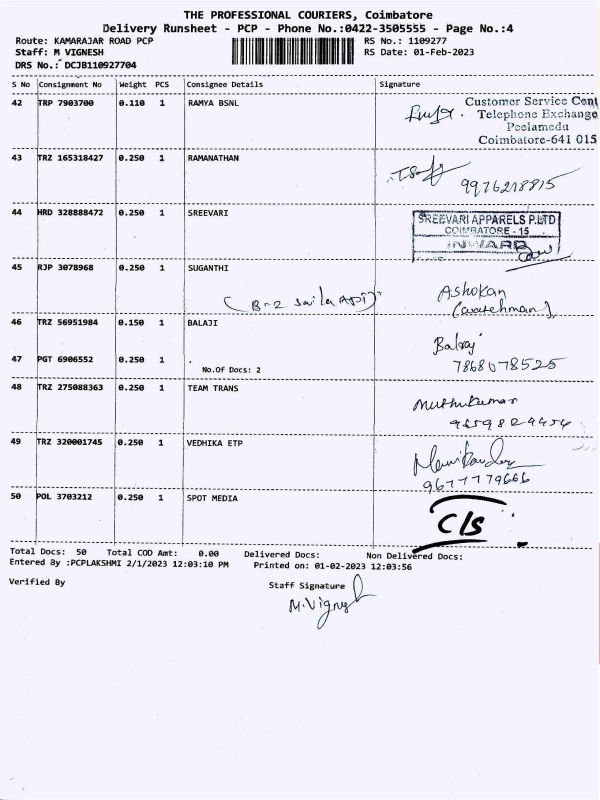 THE PROFESSIONAL COURIERS, Coimbatore
Delivery Runsheet - PCP - Phone No.:0422-3505555 - Page No.:4
Route: KAMARAJAR ROAD PCP RS No.: 1109277
Staff: M VIGNESH RS Date: 01-Feb-2023
DRS No.: DCJB110927704
S No Consignment No Weight PCS Consignee Details Signature
42 TRP 7903700 0.110 1 RAMYA BSNL
Customer Service Cent
Telephone Exchange
Peelamedu
Coimbatore-641 015
43 TRZ 165318427 0.250 1 RAMANATHAN
9976218815
44 HRD 328888472 0.250 1 SREEVARI
SREEVARI APPARELS P.LTD
COIMBATORE - 15
INWARD
45 RJP 3078968 0.250 1 SUGANTHI
Ashokan
(watchman)
46 TRZ 56951984 0.150 1 BALAJI
Balaji
47 PGT 6906552 0.250 1
No.Of Docs: 2
7868078525
48 TRZ 275088363 0.250 1 TEAM TRANS
Muthukumar
49 TRZ 320001745 0.250 1 VEDHIKA ETP
Manikandan
9677779666
50 POL 3703212 0.250 1 SPOT MEDIA
C/s
Total Docs: 50 Total COD Amt: 0.00 Delivered Docs: Non Delivered Docs:
Entered By :PCPLAKSHMI 2/1/2023 12:03:10 PM Printed on: 01-02-2023 12:03:56
Verified By Staff Signature
M.Vignesh